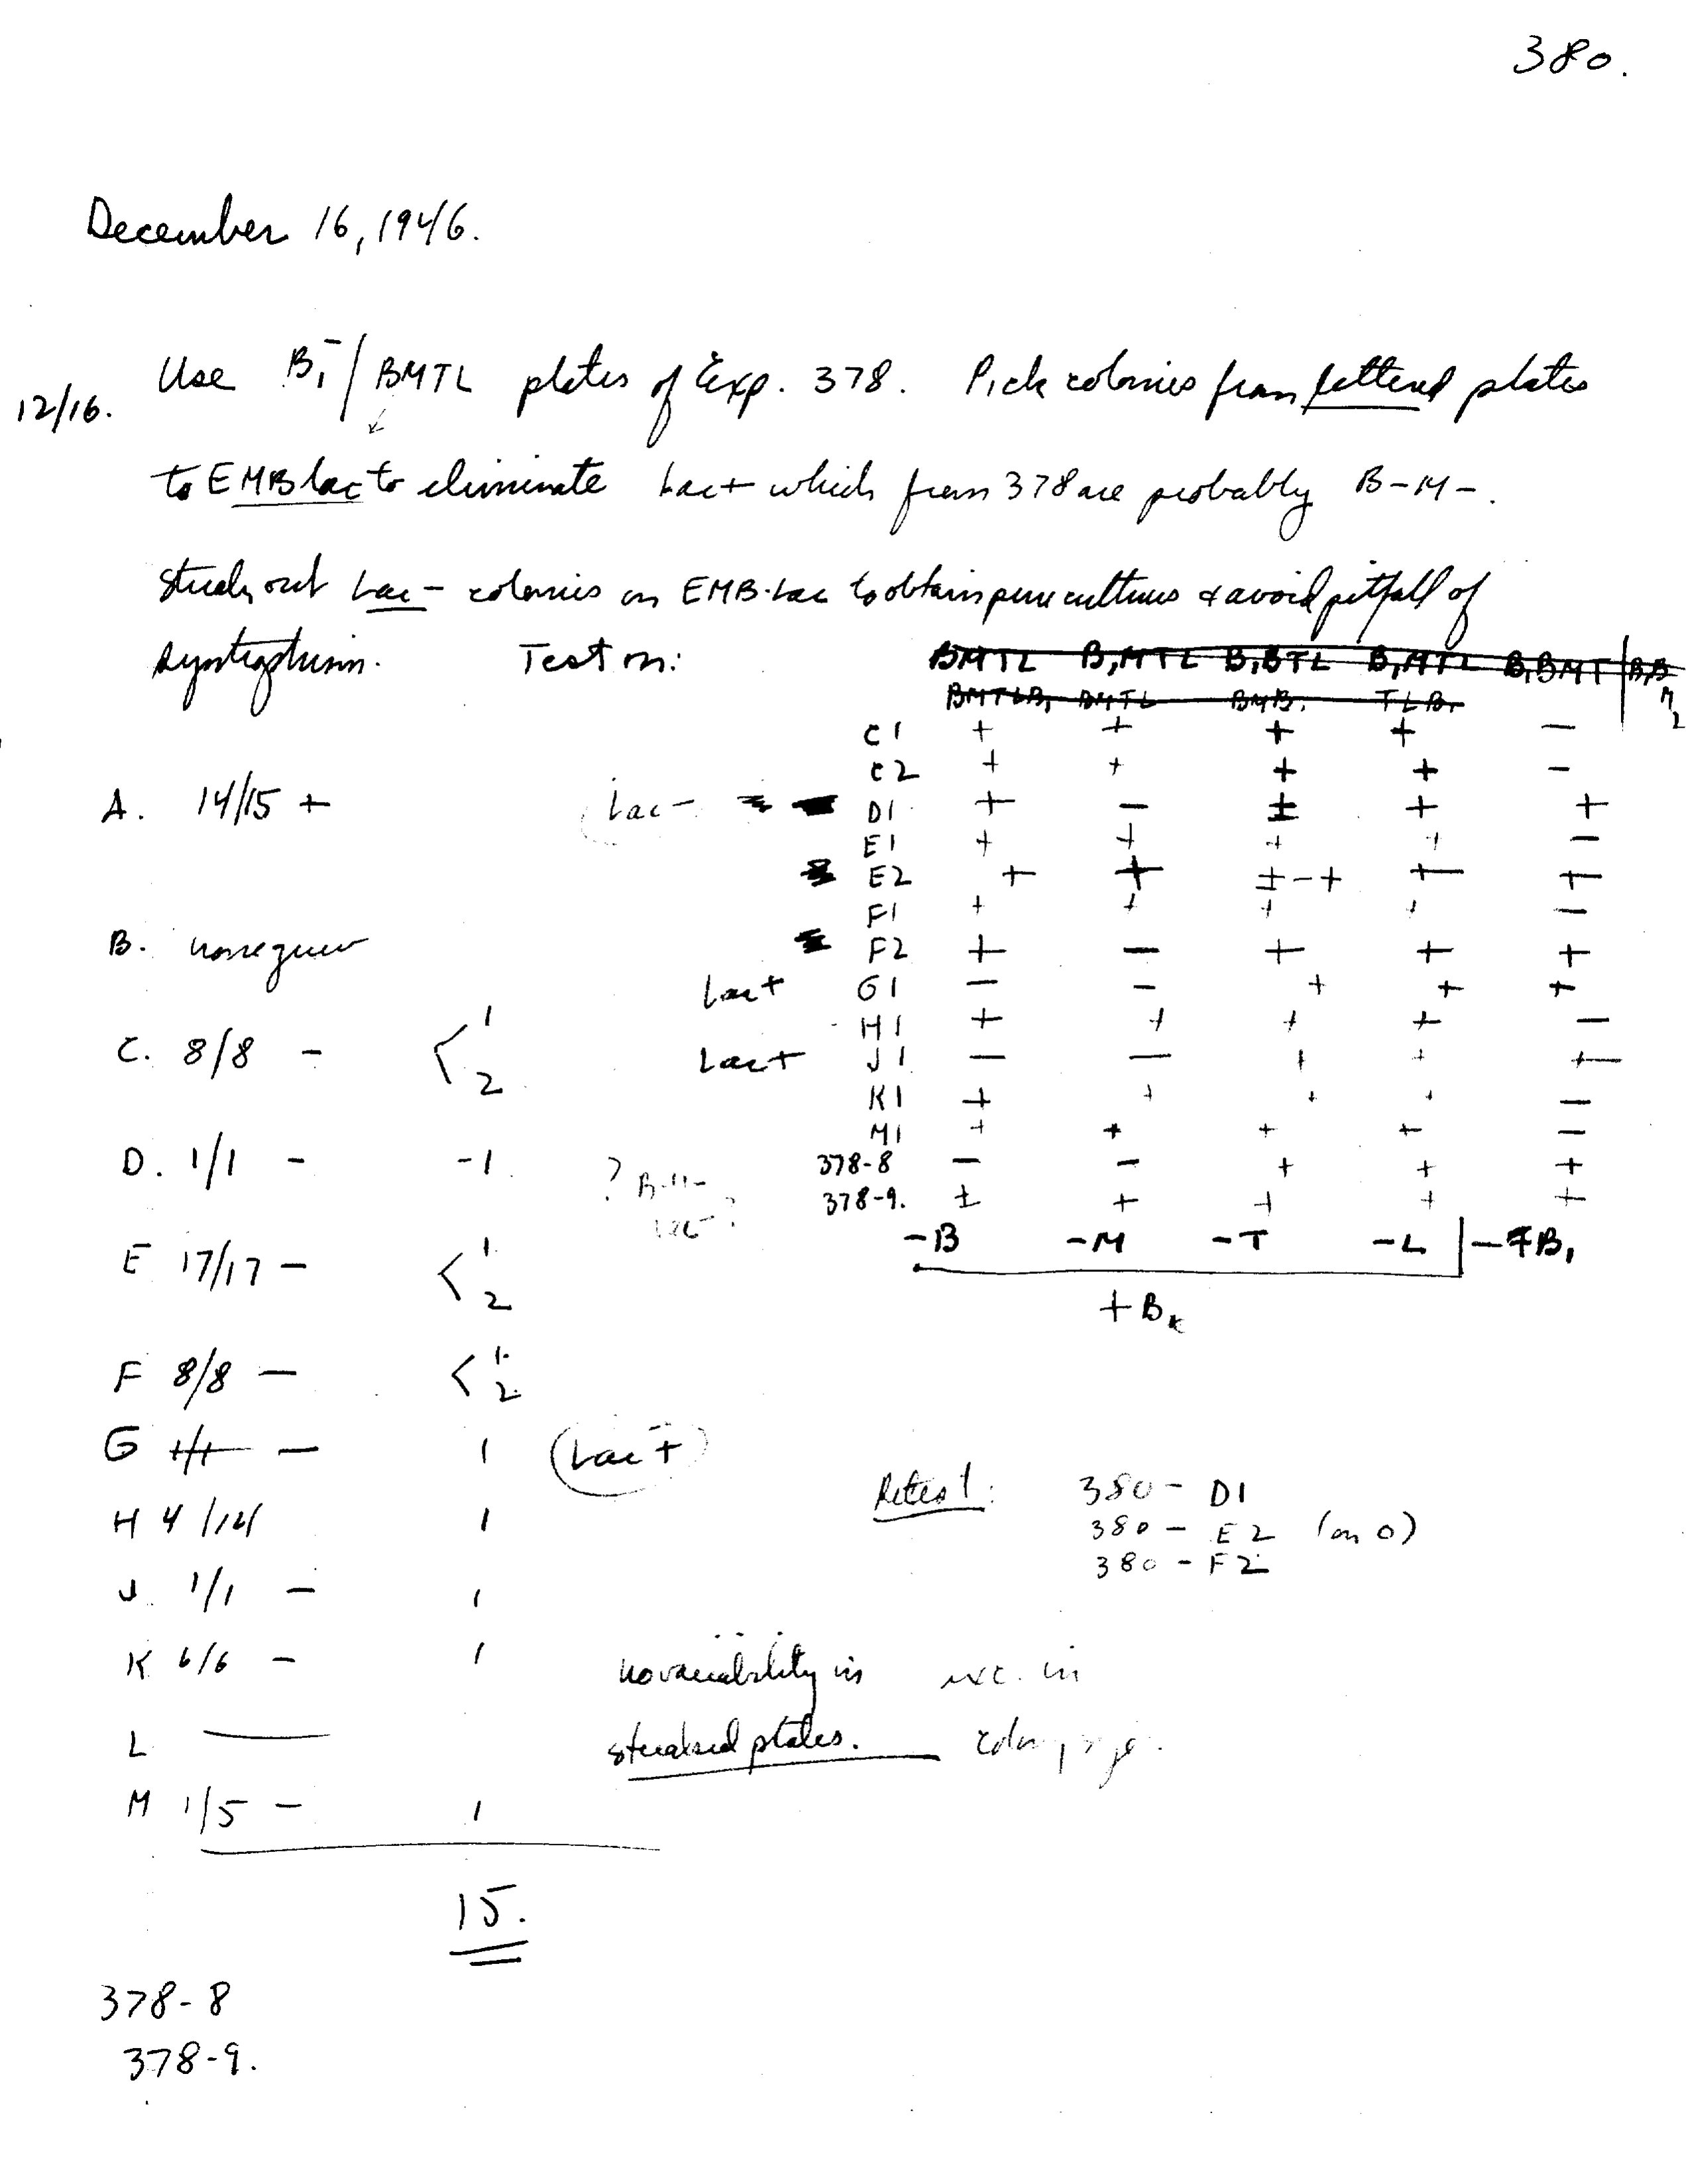 380.
December 16, 1946.
12/16. Use B₁⁻/BMTL plates of Exp. 378. Pick colonies from lettered plates
to EMB lac to eliminate Lac+ which from 378 are probably B-M-.
Streak out Lac- colonies on EMB-Lac to obtain pure cultures & avoid pitfall of
syntrophism. Test on:
BMTL B₁MTL B₁BTL B₁MTL B₁BMT
BMTLB₁ BMTL BMB₁ TLB₁
C1 + + + + -
C2 + + + + -
Lac- D1 + - ± + +
E1 + + + + -
E2 + + ±-+ + +
F1 + + + + -
F2 + - + + +
Lac+ G1 - - + + +
H1 + + + + -
Lac+ J1 - - + + +
K1 + + + + -
M1 + + + + -
378-8 - - + + +
378-9. ± + + + +
-B -M -T -L -B₁
+B
A. 14/15 +
B.
C. 8/8 - < 1 2
D. 1/1 - -1.
E 17/17 - < 1 2
F 8/8 - < 1. 2.
G 1/1 - 1 (Lac+)
H 4/14 1
J. 1/1 - 1
K 6/6 - 1
L ——
M 1/5 - 1
15.
Retest: 380 - D1
380 - E2 (on 0)
380 - F2
no variability in exc. in
streaked plates.
378-8
378-9.